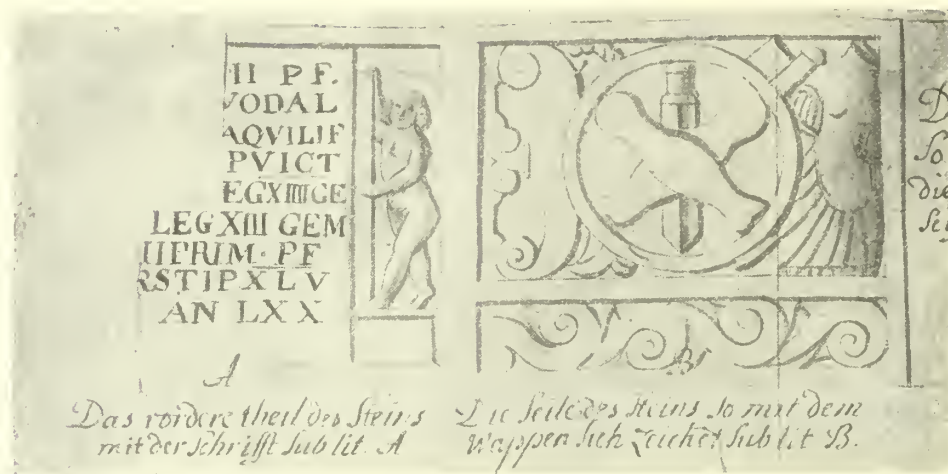 II PF.
VODAL
AQVILIF
PVICT
EGXIIIIGE
LEGXIII GEM
IIPRIM·PF
RSTIPXLV
AN LXX
A
Das vordere theil des Steins
mit der schrifft sub lit. A
B
Die seite des Steins so mit dem
Wappen sich zeichet sub lit B.
D
So
die